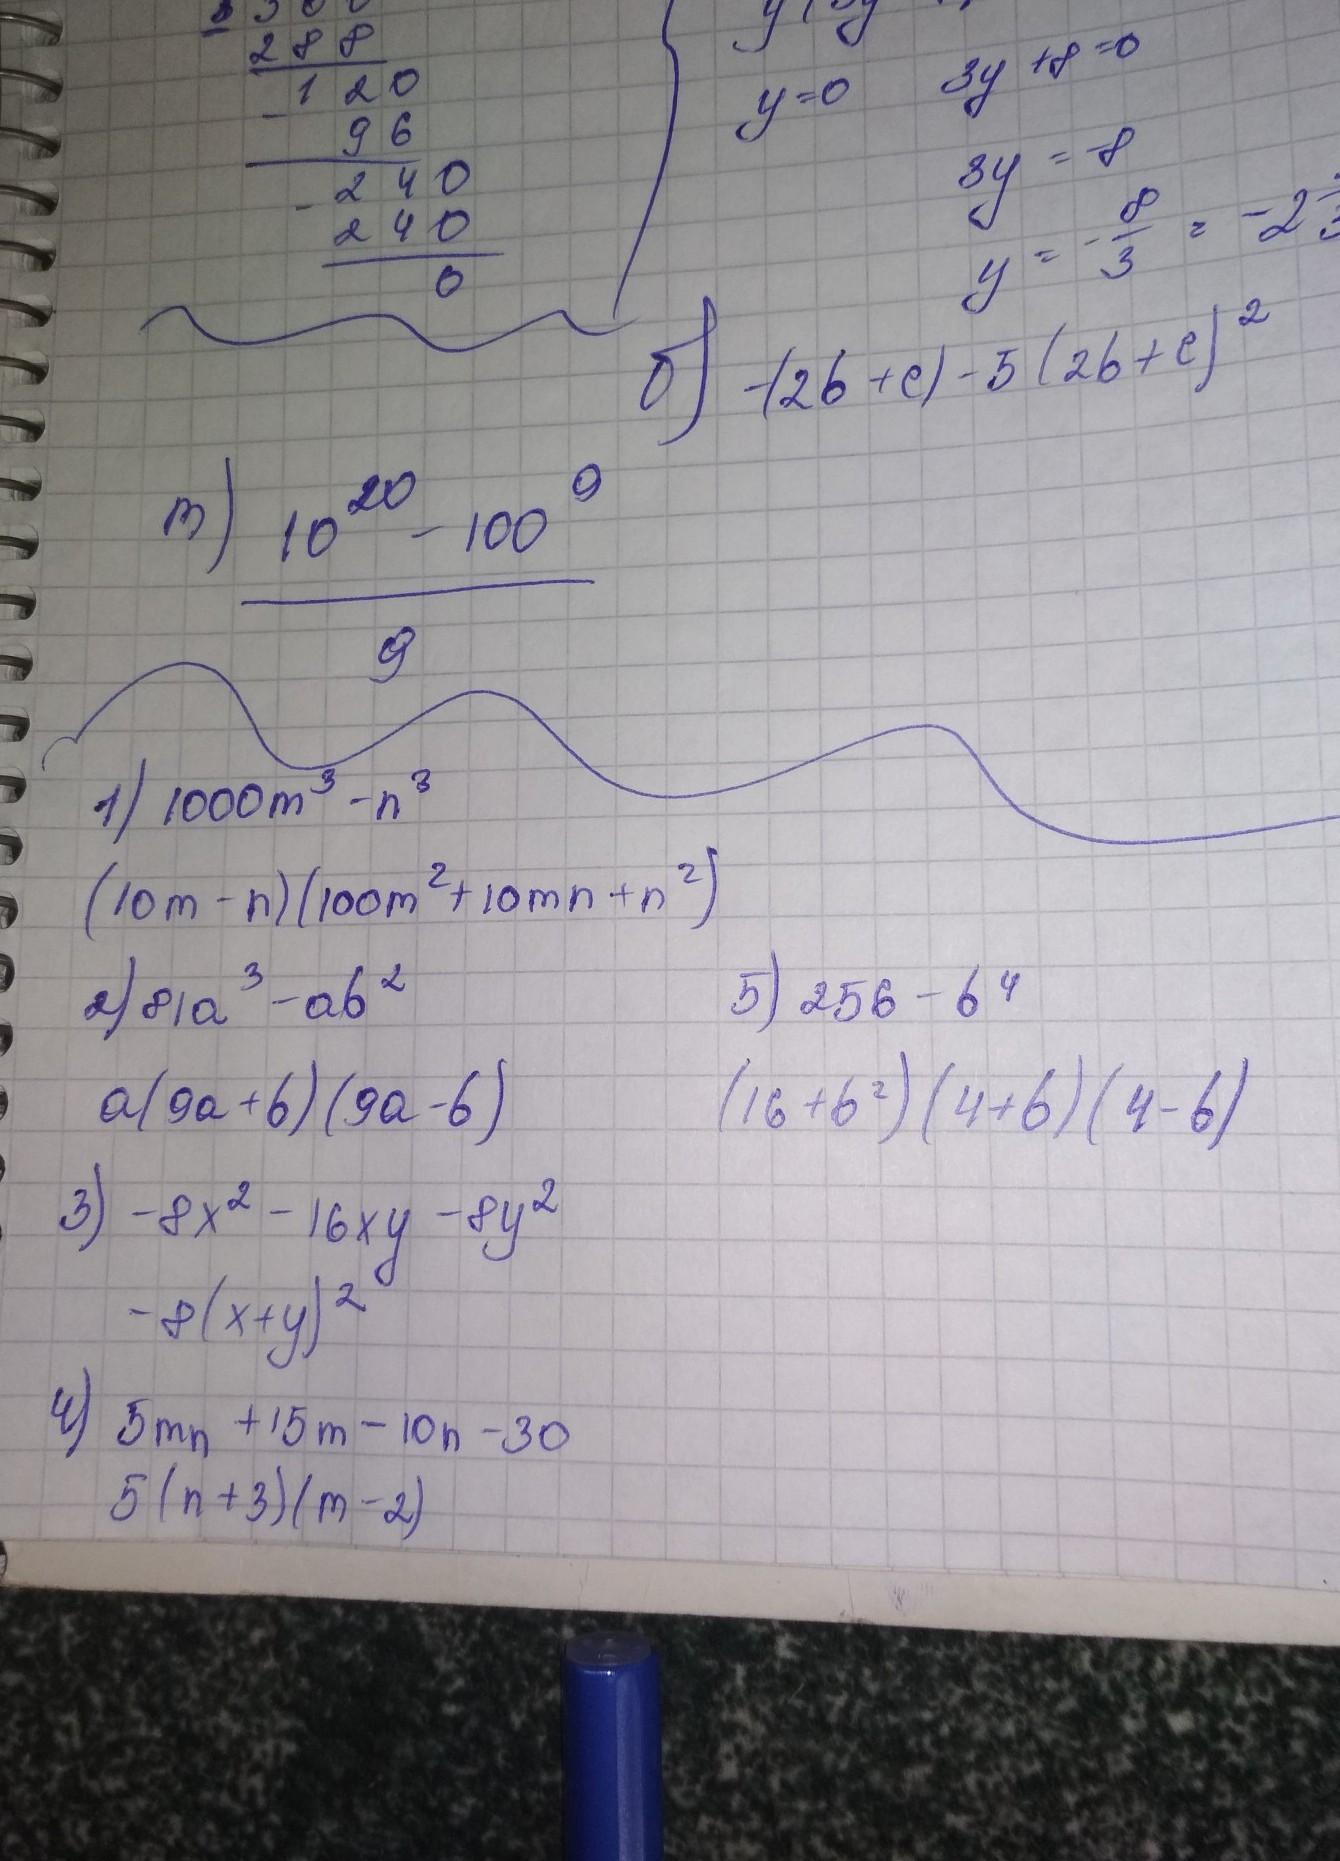 288
- 120
96
- 240
240
0
y=0 3y+8=0
3y = -8
y = -8/3 = -2
б) -(2b+c)-5(2b+c)²
т) 10²⁰ - 100⁹
9
1) 1000m³-n³
(10m-n)(100m²+10mn+n²)
2) 81a³-ab²
a(9a+b)(9a-b)
3) -8x²-16xy-8y²
-8(x+y)²
4) 5mn+15m-10n-30
5(n+3)(m-2)
5) 256-b⁴
(16+b²)(4+b)(4-b)